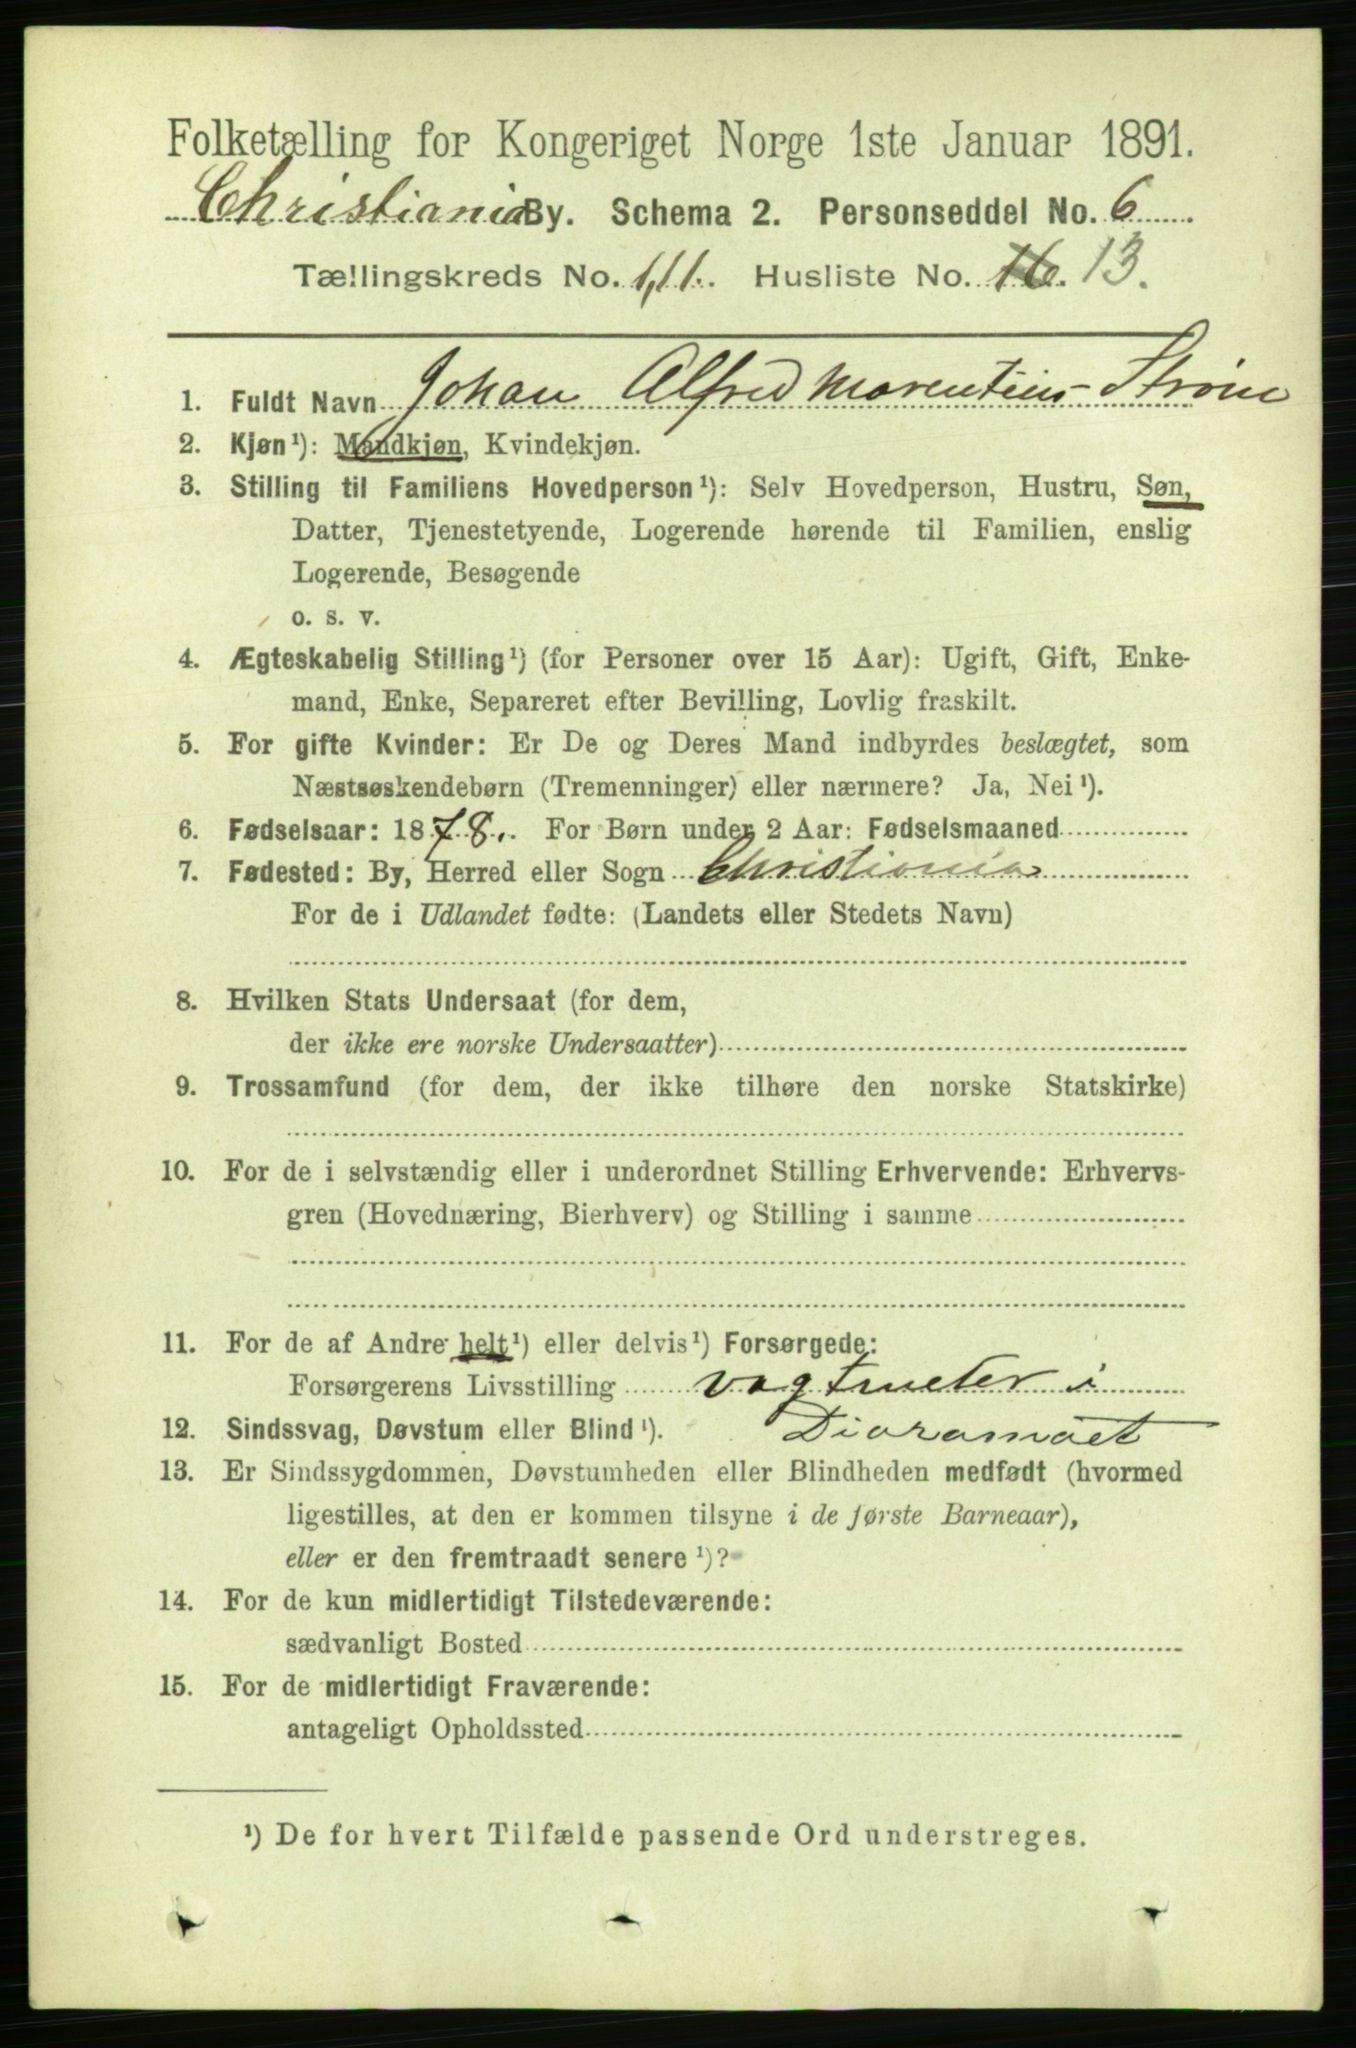 Folketælling for Kongeriget Norge 1ste Januar 1891.
Christiania By. Schema 2. Personseddel No. 6
Tællingskreds No. 111. Husliste No. 16. 13.
1. Fuldt Navn Johan Alfred Morentius Strøm
2. Kjøn¹): Mandkjøn, Kvindekjøn.
3. Stilling til Familiens Hovedperson¹): Selv Hovedperson, Hustru, Søn,
Datter, Tjenestetyende, Logerende hørende til Familien, enslig
Logerende, Besøgende
o. s. v.
4. Ægteskabelig Stilling¹) (for Personer over 15 Aar): Ugift, Gift, Enke-
mand, Enke, Separeret efter Bevilling, Lovlig fraskilt.
5. For gifte Kvinder: Er De og Deres Mand indbyrdes beslægtet, som
Næstsøskendebørn (Tremenninger) eller nærmere? Ja, Nei¹).
6. Fødselsaar: 1878. For Børn under 2 Aar: Fødselsmaaned
7. Fødested: By, Herred eller Sogn Christiania
For de i Udlandet fødte: (Landets eller Stedets Navn)
8. Hvilken Stats Undersaat (for dem,
der ikke ere norske Undersaatter)
9. Trossamfund (for dem, der ikke tilhøre den norske Statskirke)
10. For de i selvstændig eller i underordnet Stilling Erhvervende: Erhvervs-
gren (Hovednæring, Bierhverv) og Stilling i samme
11. For de af Andre helt¹) eller delvis¹) Forsørgede:
Forsørgerens Livsstilling vagtmeter i
12. Sindssvag, Døvstum eller Blind¹). Dioramaet
13. Er Sindssygdommen, Døvstumheden eller Blindheden medfødt (hvormed
ligestilles, at den er kommen tilsyne i de første Barneaar),
eller er den fremtraadt senere¹)?
14. For de kun midlertidigt Tilstedeværende:
sædvanligt Bosted
15. For de midlertidigt Fraværende:
antageligt Opholdssted
¹) De for hvert Tilfælde passende Ord understreges.